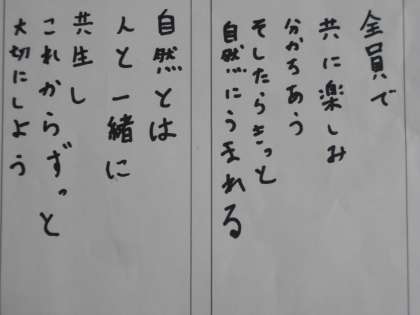 全員で
共に楽しみ
分かちあう
そしたらきっと
自然にうまれる
自然とは
人と一緒に
共生し
これからずっと
大切にしよう